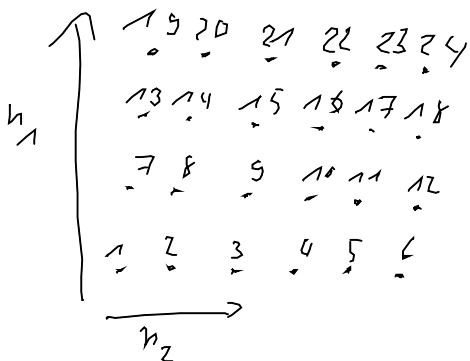 19 20 21 22 23 24
13 14 15 16 17 18
n1
7 8 9 10 11 12
1 2 3 4 5 6
n2